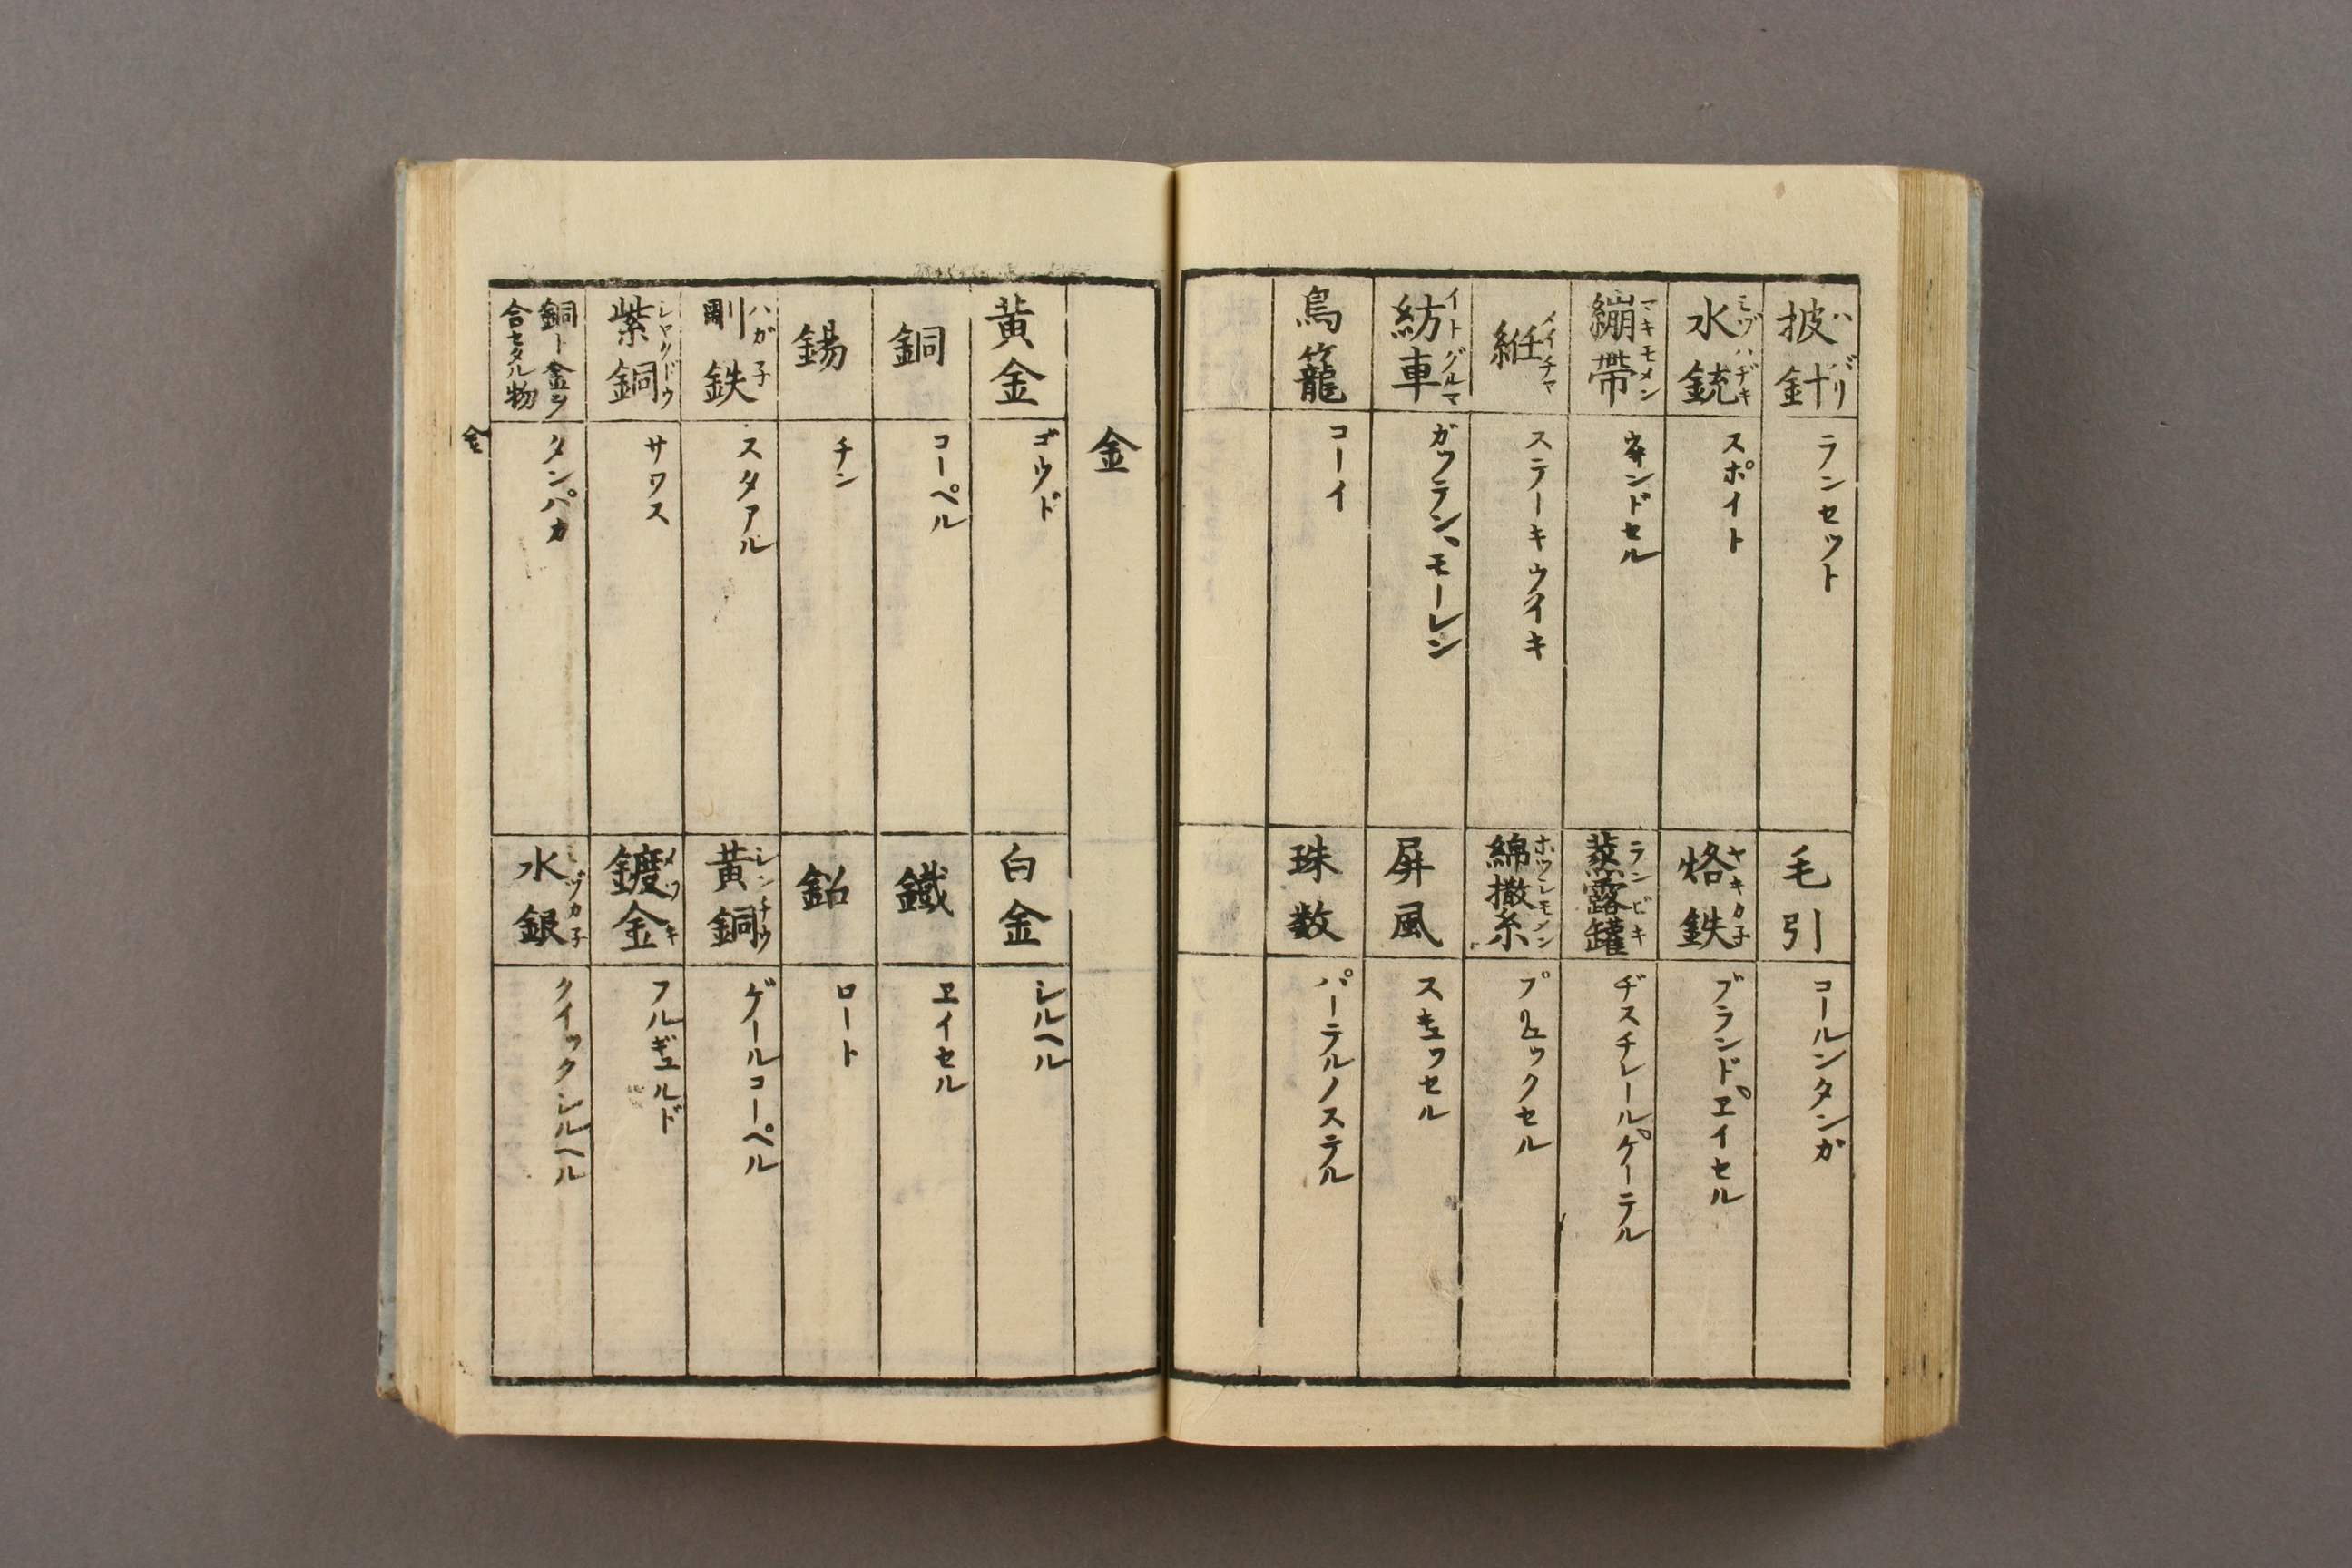 披針 ハバリ
ランセット
毛引
コールンタンガ
水銃 ミヅハヂキ
スポイト
烙鉄 ヤキカ子
ブランドヱイセル
繃帶 マキモメン
ンドセル
蒸露罐 ランビキ
ヂスチレールケーテル
メイチャ
ステーキウイキ
綿撒糸 ホツレモメン
プリュックセル
紡車 イトグルマ
ガツテン、モーレン
屏風
スキュッセル
鳥籠
コーイ
珠数
パーテルノステル
金
黄金
ゴウド
白金
シルヘル
銅
コーペル
鐵
ヱイセル
錫
チン
鉛
ロート
剛鉄 ハガ子
スタアル
黄銅 シンチウ
ゲールコーペル
紫銅 シヤクドウ
サワス
鍍金 メツキ
フルギュルド
銅ト金ヲ
合セタル物
タンバカ
水銀 ミヅカ子
クイックシルヘル
金